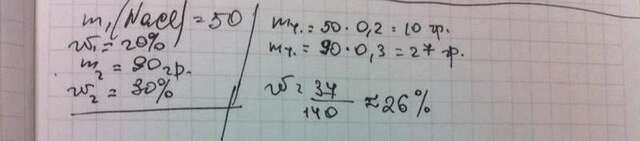 m₁(NaCl) = 50
ω₁ = 20%
m₂ = 90гр.
ω₂ = 30%
mч. = 50 · 0,2 = 10 гр.
mч. = 90 · 0,3 = 27 гр.
ω = 37/140 ≈ 26%